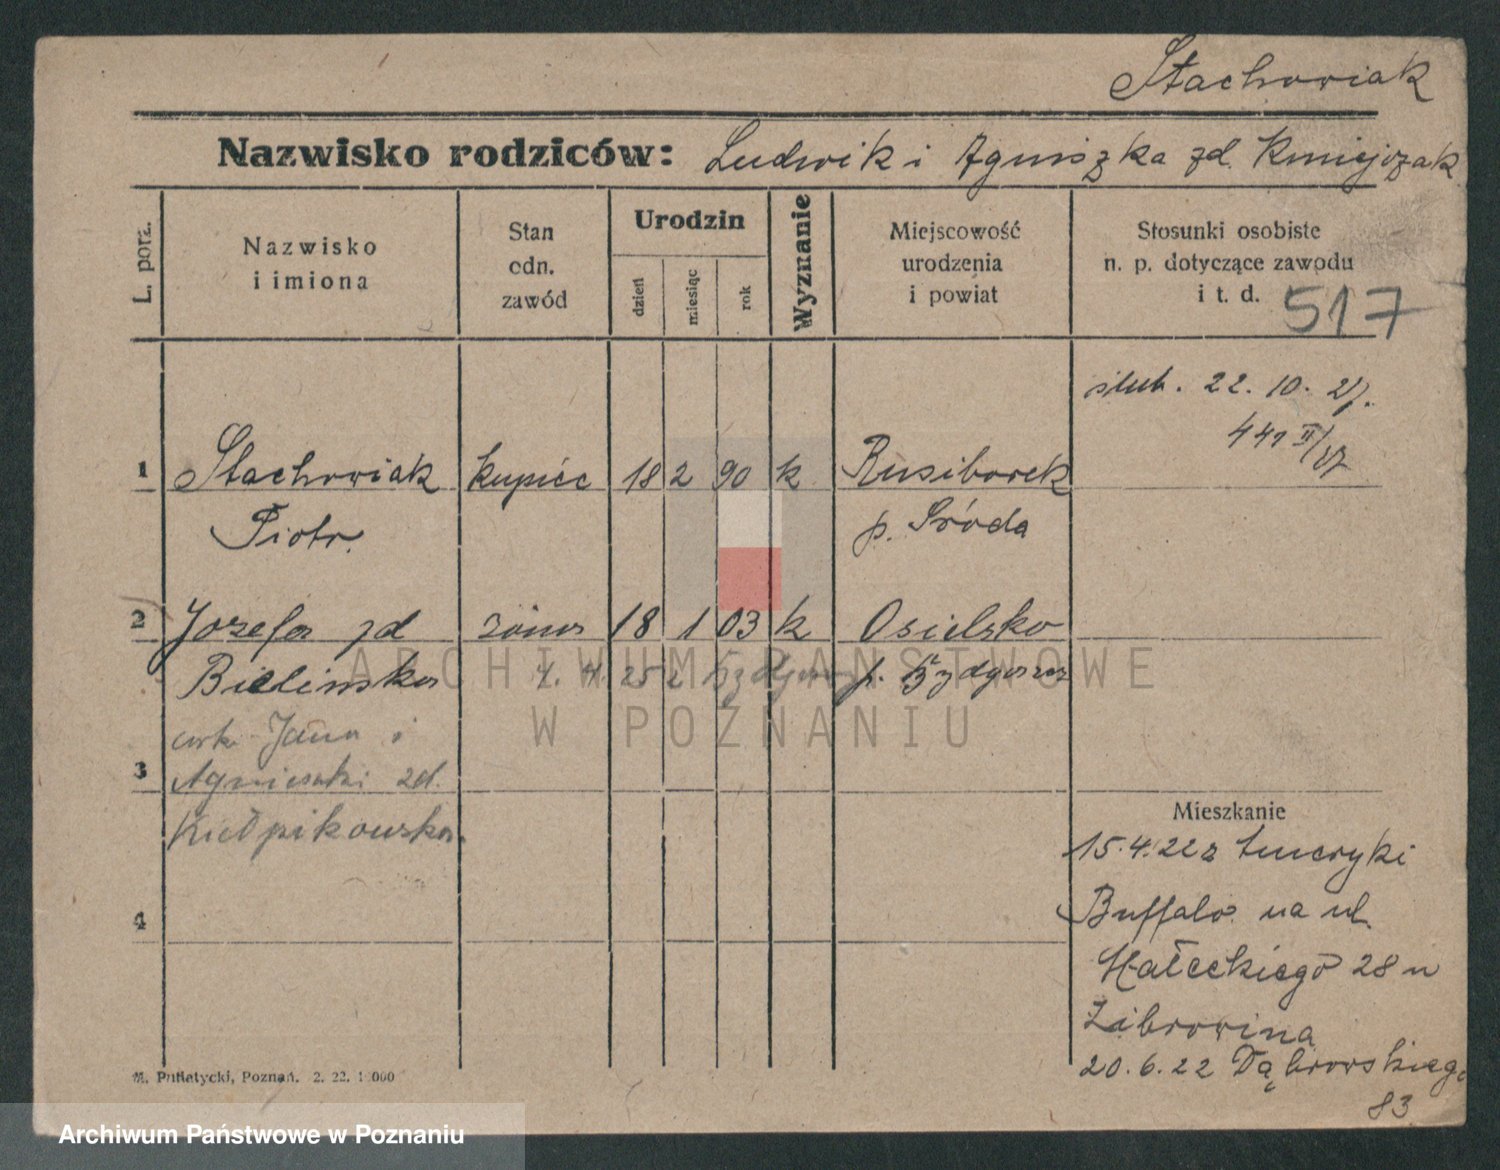 Stachowiak
Nazwisko rodziców: Ludwik i Agniszka zd. Kmiejczak
L. porz.
Nazwisko
i imiona
Stan
odn.
zawód
Urodzin
dzień
miesiąc
rok
Wyznanie
Miejscowość
urodzenia
i powiat
Stosunki osobiste
n. p. dotyczące zawodu
i t. d.
517
ślub. 22. 10. 27.
441 II/27
1 Stachowiak kupiec 18 2 90 k Rusiborek
Piotr. p. Środa
2 Jozefa zd żona 18 1 03 k Osielsko
Bielinska 4. 4. 25 z Bydgoszcz p. Bydgoszcz
córka Jana i
3 Agnieszki zd.
Kiełpikowska.
4
Mieszkanie
15.4.22 z Ameryki
Buffalo na ul.
Małeckiego 28 u
Żibrowina
20.6.22 Dąbrowskiego
83
M. Putiatycki, Poznań. 2. 22. 1 000
ARCHIWUM PAŃSTWOWE
W POZNANIU
Archiwum Państwowe w Poznaniu